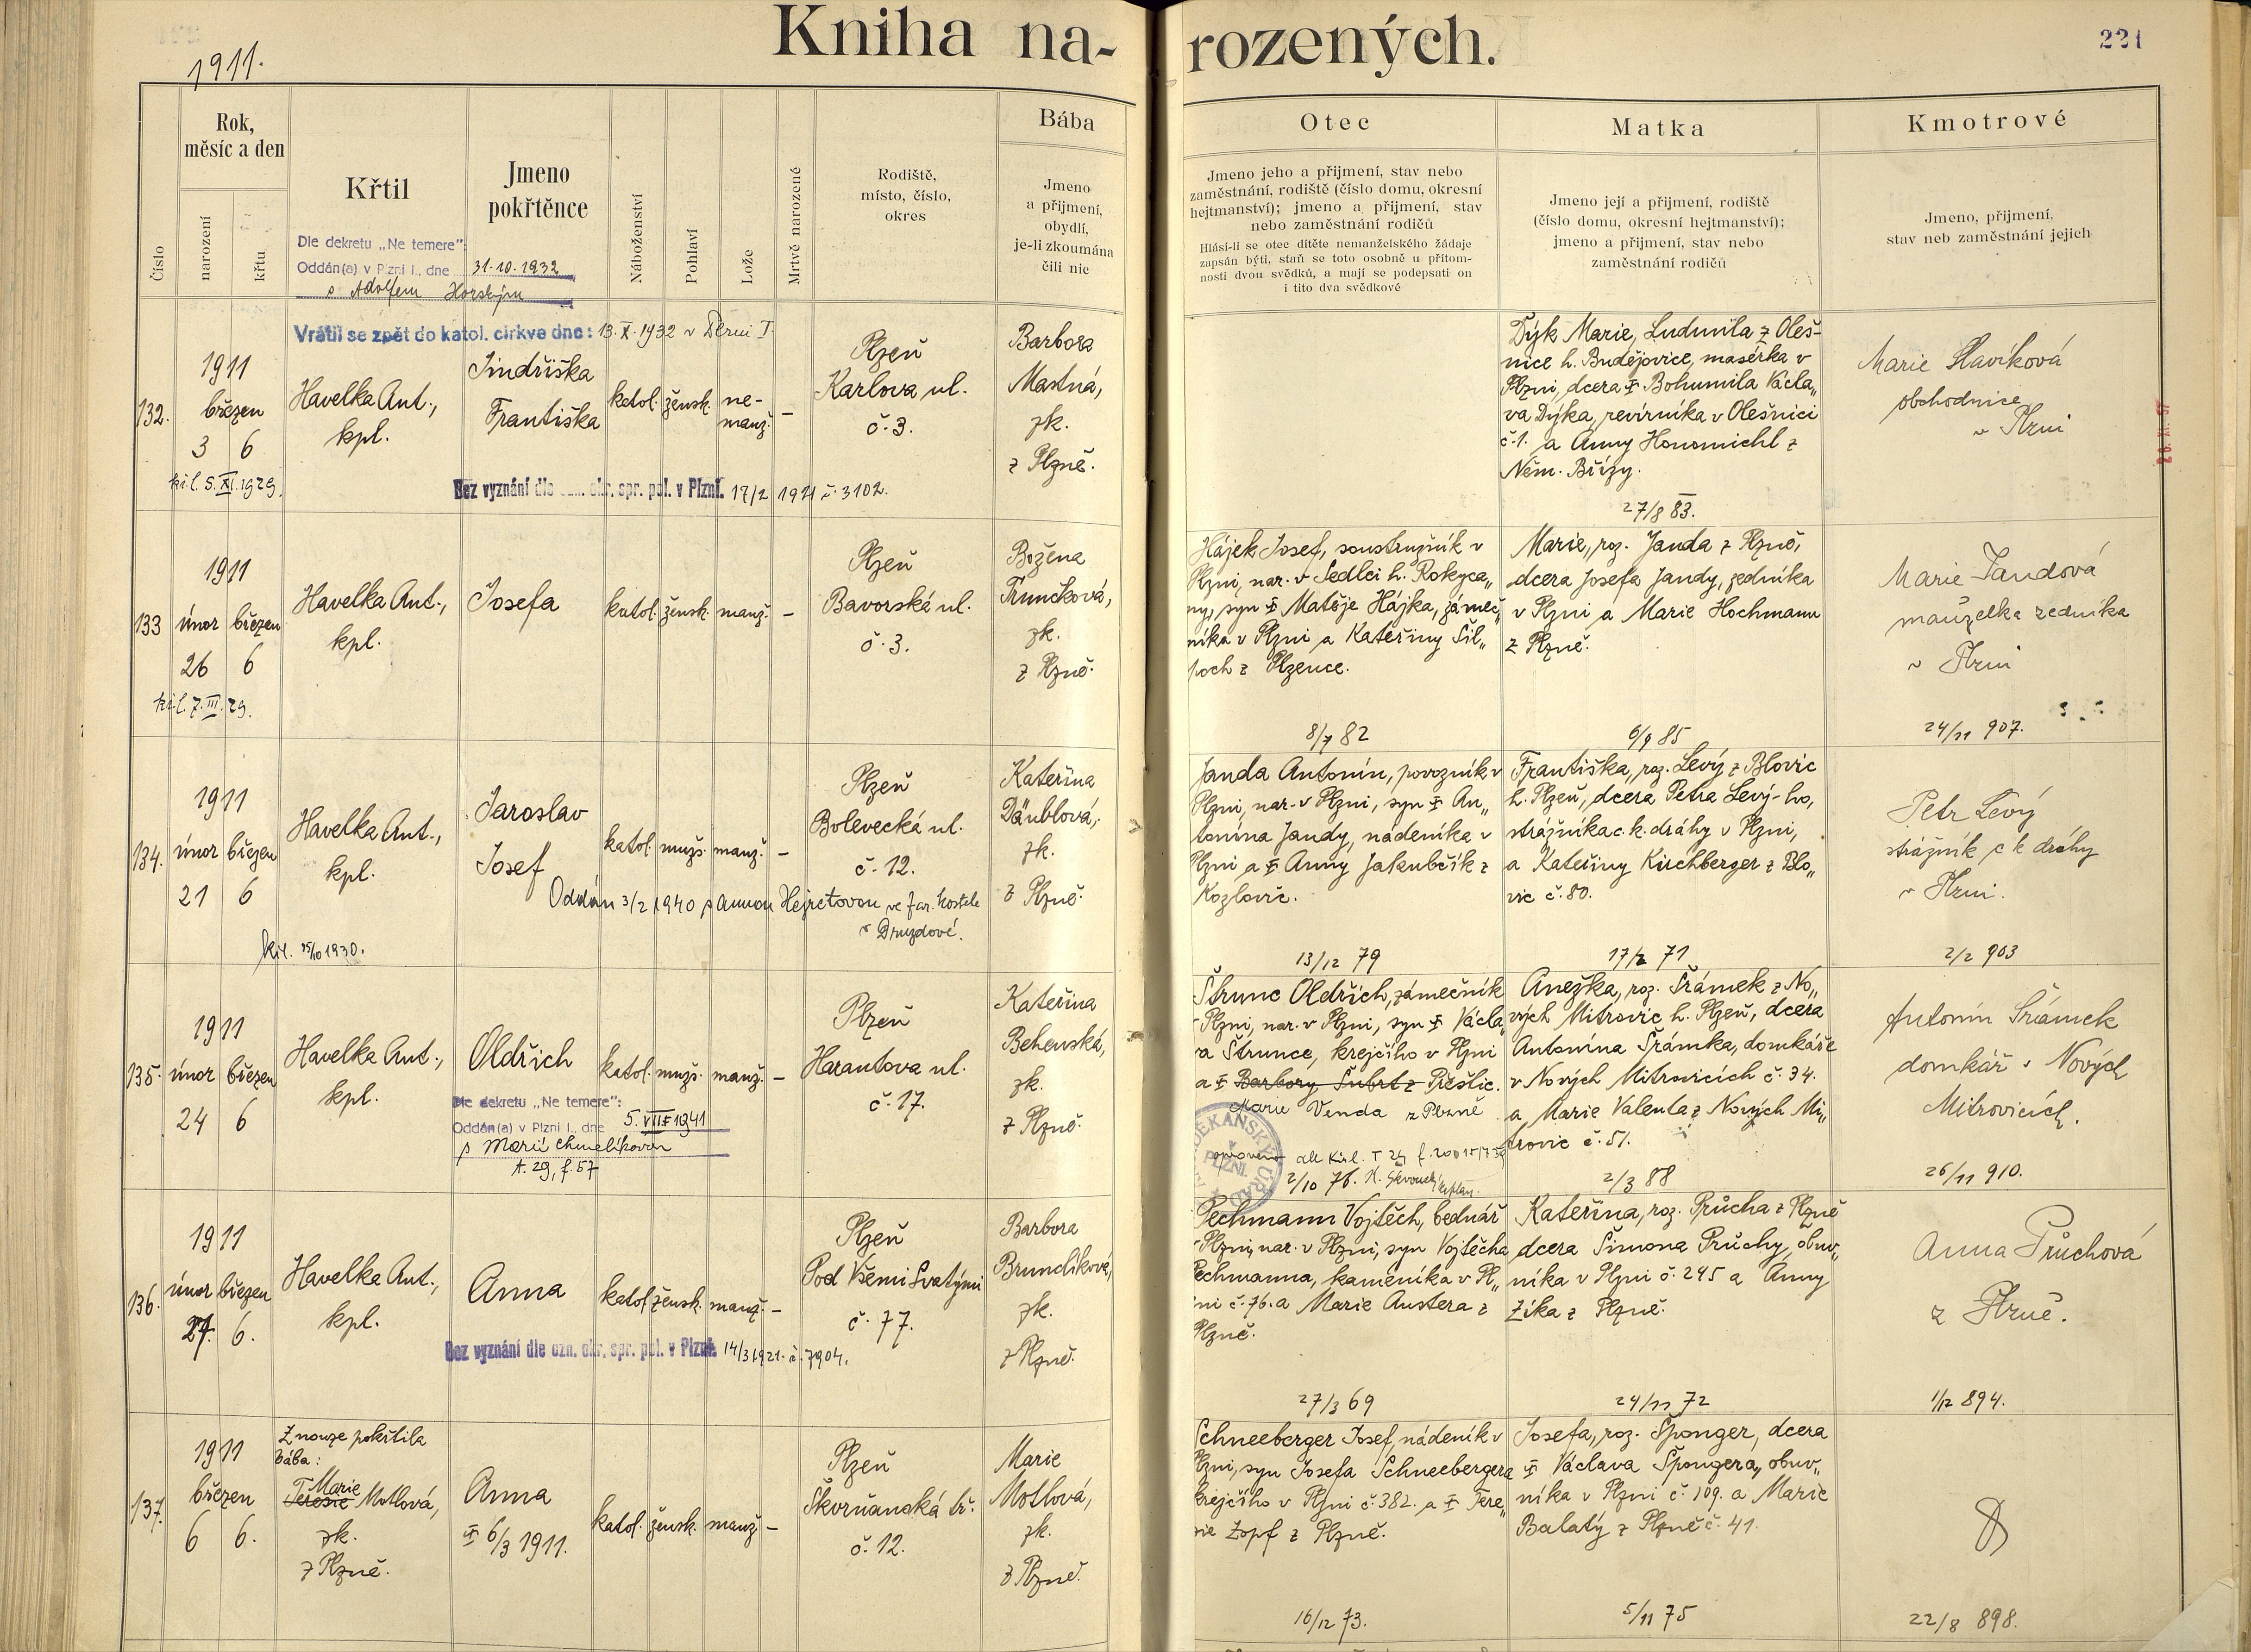 Kniha na-
rozených.
221
1911.
Číslo
Rok,
měsíc a den
narození
křtu
Křtil
Jmeno
pokřtěnce
Náboženství
Pohlaví
Lože
Mrtvě narozené
Rodiště,
místo, číslo,
okres
Bába
Jmeno
a přijmení,
obydlí,
je-li zkoumána
čili nic
Otec
Jmeno jeho a přijmení, stav nebo
zaměstnání, rodiště (číslo domu, okresní
hejtmanství); jmeno a přijmení, stav
nebo zaměstnání rodičů
Hlásí-li se otec dítěte nemanželského žádaje
zapsán býti, staň se toto osobně u přítom-
nosti dvou svědků, a mají se podepsati on
i tito dva svědkové
Matka
Jmeno její a přijmení, rodiště
(číslo domu, okresní hejtmanství);
jmeno a přijmení, stav nebo
zaměstnání rodičů
Kmotrové
Jmeno, přijmení,
stav neb zaměstnání jejich
Dle dekretu „Ne temere“:
Oddán(a) v Plzni I., dne 31·10·1932
s Adolfem Horským
Vrátil se zpět do katol. církve dne: 13·X·1932 v Plzni I.
132.
1911
březen
3 6
kř.l. 5.XI.1929.
Havelka Ant.,
kpl.
Jindřiška
Františka
katol.
žensk.
ne-
manž.
–
Plzeň
Karlova ul.
č. 3.
Barbora
Mastná,
zk.
z Plzně.
Bez vyznání dle ozn. okr. spr. pol. v Plzni. 17/2 1921 č. 3102.
Dýk Marie, Ludmila z Oleš-
nice h. Budějovice, masérka v
Plzni, dcera ✝ Bohumila Václa„
va Dýka, revírníka v Olešnici
č. 1. a Anny Honomichl z
Něm. Břízy.
27/8 83.
Marie Slavíková
obchodnice
v Plzni
133
1911
únor březen
26 6
kř.l. 7.III.29.
Havelka Ant.,
kpl.
Josefa
katol.
žensk.
manž.
–
Plzeň
Bavorská ul.
č. 3.
Božena
Trunčková,
zk.
z Plzně.
Hájek Josef, soustružník v
Plzni, nar. v Sedlci h. Rokyca„
ny, syn ✝ Matěje Hájka, zámeč„
níka v Plzni a Kateřiny Šil„
poch z Plzence.
8/7 82
Marie, roz. Janda z Plzně,
dcera Josefa Jandy, zedníka
v Plzni a Marie Hochmann
z Plzně.
6/9 85
Marie Jandová
manželka zedníka
v Plzni
24/11 907.
134.
1911
únor březen
21 6
kř.l. 25/10 1930.
Havelka Ant.,
kpl.
Jaroslav
Josef
katol.
mužs.
manž.
–
Plzeň
Bolevecká ul.
č. 12.
Kateřina
Däublová,
zk.
z Plzně.
Oddán 3/2 1940 s Annou Hejretovou ve far. kostele
v Druzdové.
Janda Antonín, povozník v
Plzni, nar. v Plzni, syn ✝ An„
tonína Jandy, nádeníka v
Plzni a ✝ Anny Jakubčík z
Kozlovic.
13/12 79
Františka, roz. Levý z Blovic
h. Plzeň, dcera Petra Levý-ho,
strážníka c.k. dráhy v Plzni,
a Kateřiny Kirchberger z Blo„
vic č. 80.
17/2 71
Petr Levý
strážník c k dráhy
v Plzni.
2/2 903
135.
1911
únor březen
24 6
Havelka Ant.,
kpl.
Oldřich
katol.
mužs.
manž.
–
Plzeň
Harantova ul.
č. 17.
Kateřina
Behenská,
zk.
z Plzně.
Dle dekretu „Ne temere“:
Oddán(a) v Plzni I., dne 5. VIII 1941
s Marií Chmelíkovou
t. 29, f. 57
Štrunc Oldřich, zámečník
v Plzni, nar. v Plzni, syn ✝ Václa„
va Štrunce, krejčího v Plzni
a ✝ Barbory Šubrt z Přeštic.
Marie Venda z Plzně
2/10 76.
Anežka, roz. Šrámek z No„
vých Mitrovic h. Plzeň, dcera
Antonína Šrámka, domkáře
v Nových Mitrovicích č. 34.
a Marie Valenta z Nových Mi„
trovic č. 51.
2/3 88
Antonín Šrámek
domkář v Nových
Mitrovicích.
26/11 910.
136.
1911
únor březen
27. 6.
Havelka Ant.,
kpl.
Anna
katol.
žensk.
manž.
–
Plzeň
Pod Všemi Svatými
č. 77.
Barbora
Brunclíková,
zk.
z Plzně.
Bez vyznání dle ozn. okr. spr. pol. v Plzni. 14/3 1921. č. 7904.
Pechmann Vojtěch, bednář
v Plzni, nar. v Plzni, syn Vojtěcha
Pechmanna, kameníka v Pl„
zni č. 76. a Marie Austera z
Plzně.
27/3 69
Kateřina, roz. Průcha z Plzně
dcera Šimona Průchy, obuv„
níka v Plzni č. 245 a Anny
Zíka z Plzně.
24/11 72
Anna Průchová
z Plzně.
1/12 894.
137.
1911
březen
6 6.
Z nouze pokřtila
bába:
Marie
Terezie Motlová,
zk.
z Plzně.
Anna
✝ 6/3 1911.
katol.
žensk.
manž
–
Plzeň
Skvrňanská tř.
č. 12.
Marie
Motlová,
zk.
z Plzně.
Schneeberger Josef, nádeník v
Plzni, syn Josefa Schneebergera
krejčího v Plzni č. 382. a ✝ Tere„
zie Zopf z Plzně.
16/12 73.
Josefa, roz. Sponger, dcera
✝ Václava Spongera, obuv„
níka v Plzni č. 109. a Marie
Balatý z Plzně č. 41.
5/11 75
22/8 898.